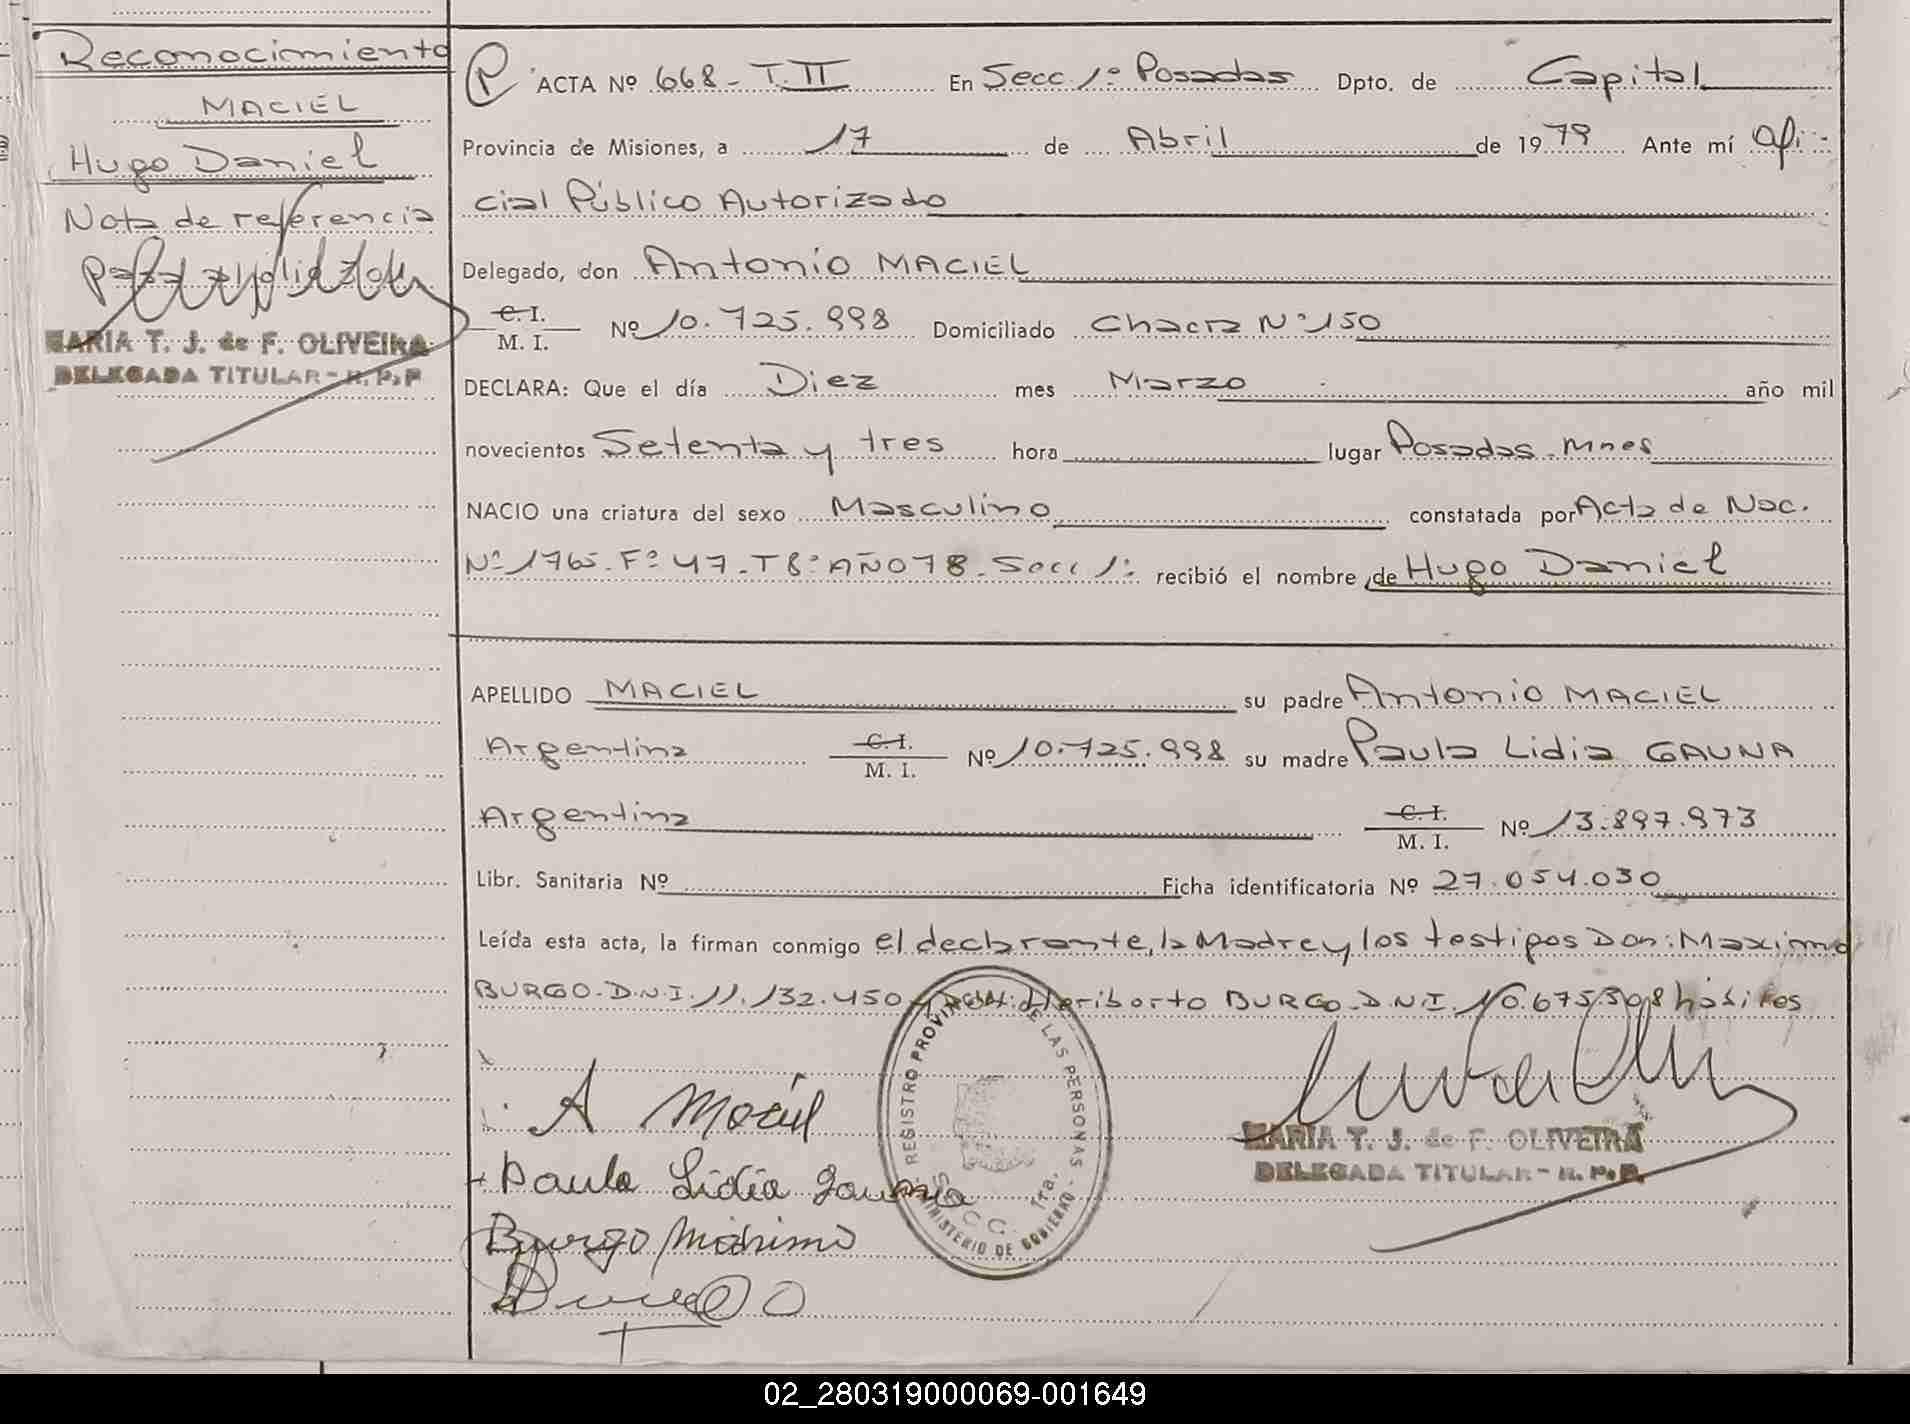 Reconocimiento
MACIEL
Hugo Daniel
Nota de referencia
MARIA T. J. de F. OLIVEIRA
DELEGADA TITULAR - R. P. P.
P ACTA Nº 668 - T. II En Secc 1º Posadas Dpto. de Capital
Provincia de Misiones, a 17 de Abril de 1979 Ante mí Ofi-
cial Público Autorizado
Delegado, don Antonio MACIEL
C. I.
M. I. Nº 10.725.998 Domiciliado Chacra Nº 150
DECLARA: Que el día Diez mes Marzo año mil
novecientos Setenta y tres hora lugar Posadas - Mnes
NACIO una criatura del sexo Masculino constatada por Acta de Nac.
Nº 1765. Fº 47. T8º AÑO 78. Secc 1º recibió el nombre de Hugo Daniel
APELLIDO MACIEL su padre Antonio MACIEL
Argentina C. I. M. I. Nº 10.725.998 su madre Paula Lidia GAUNA
Argentina C. I. M. I. Nº 13.897.973
Libr. Sanitaria Nº Ficha identificatoria Nº 27.054.030
Leída esta acta, la firman conmigo el declarante, la Madre y los testigos Don: Maximo
BURGO. D.N.I. 11.132.450 Heriberto BURGO. D.N.I. 10.675.308 hábiles
A Maciel
Paula Lidia Gauna
Burgo Máximo
REGISTRO PROVINCIAL DE LAS PERSONAS
MINISTERIO DE GOBIERNO
SECC. 1ra.
MARIA T. J. de F. OLIVEIRA
DELEGADA TITULAR - R. P. P.
02_280319000069-001649